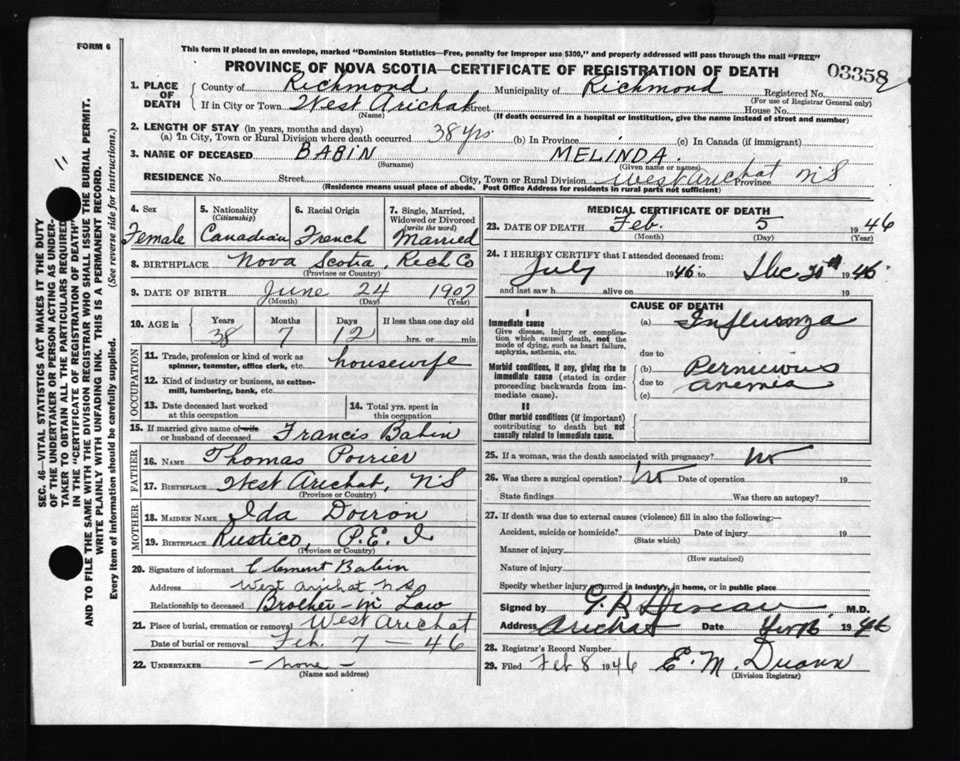 FORM 6
This form if placed in an envelope, marked "Dominion Statistics—Free, penalty for improper use $300," and properly addressed will pass through the mail "FREE"
PROVINCE OF NOVA SCOTIA—CERTIFICATE OF REGISTRATION OF DEATH
03358
1. PLACE OF DEATH
County of Richmond Municipality of Richmond Registered No.
(For use of Registrar General only)
If in City or Town West Arichat Street House No.
(Name) (If death occurred in a hospital or institution, give the name instead of street and number)
2. LENGTH OF STAY (in years, months and days)
(a) In City, Town or Rural Division where death occurred 38 yrs (b) In Province (c) In Canada (if immigrant)
3. NAME OF DECEASED BABIN MELINDA.
(Surname) (Given name or names)
RESIDENCE No. Street City, Town or Rural Division West Arichat Province NS
(Residence means usual place of abode. Post Office Address for residents in rural parts not sufficient)
4. Sex
Female
5. Nationality (Citizenship)
Canadian
6. Racial Origin
French
7. Single, Married, Widowed or Divorced (write the word)
Married
8. BIRTHPLACE Nova Scotia, Rich Co
(Province or Country)
9. DATE OF BIRTH June 24 1907
(Month) (Day) (Year)
10. AGE in Years Months Days If less than one day old
38 7 12 hrs. or min.
OCCUPATION
11. Trade, profession or kind of work as spinner, teamster, office clerk, etc. housewife
12. Kind of industry or business, as cotton-mill, lumbering, bank, etc.
13. Date deceased last worked at this occupation
14. Total yrs. spent in this occupation
15. If married give name of wife or husband of deceased Francis Babin
FATHER
16. NAME Thomas Poirier
17. BIRTHPLACE West Arichat, NS
(Province or Country)
MOTHER
18. MAIDEN NAME Ida Doiron
19. BIRTHPLACE Rustico, P.E.I
(Province or Country)
20. Signature of informant Clement Babin
Address West Arichat NS
Relationship to deceased Brother-in Law
21. Place of burial, cremation or removal West Arichat
Date of burial or removal Feb. 7 — 46
22. UNDERTAKER - none -
(Name and address)
MEDICAL CERTIFICATE OF DEATH
23. DATE OF DEATH Feb. 5 1946
(Month) (Day) (Year)
24. I HEREBY CERTIFY that I attended deceased from:
July 1946 to 20th 1946
and last saw h alive on 19
CAUSE OF DEATH
I
Immediate cause—
Give disease, injury or complication which caused death, not the mode of dying, such as heart failure, asphyxia, asthenia, etc.
(a) Influenza
due to
Morbid conditions, if any, giving rise to immediate cause (stated in order proceeding backwards from immediate cause).
(b) Pernicious
due to anemia
(c)
II
Other morbid conditions (if important) contributing to death but not causally related to immediate cause.
25. If a woman, was the death associated with pregnancy? No
26. Was there a surgical operation? No Date of operation 19
State findings Was there an autopsy?
27. If death was due to external causes (violence) fill in also the following:—
Accident, suicide or homicide? Date of injury 19
(State which)
Manner of injury
(How sustained)
Nature of injury
Specify whether injury occurred in industry, in home, or in public place
Signed by G. R. M.D.
Address Arichat Date 1946
28. Registrar's Record Number
29. Filed Feb 8 1946 E. M.
(Division Registrar)
SEC. 46—VITAL STATISTICS ACT MAKES IT THE DUTY
OF THE UNDERTAKER OR PERSON ACTING AS UNDER-
TAKER TO OBTAIN ALL THE PARTICULARS REQUIRED
IN THE "CERTIFICATE OF REGISTRATION OF DEATH"
AND TO FILE THE SAME WITH THE DIVISION REGISTRAR WHO SHALL ISSUE THE BURIAL PERMIT.
WRITE PLAINLY WITH UNFADING INK. THIS IS A PERMANENT RECORD.
Every item of Information should be carefully supplied. (See reverse side for instructions.)